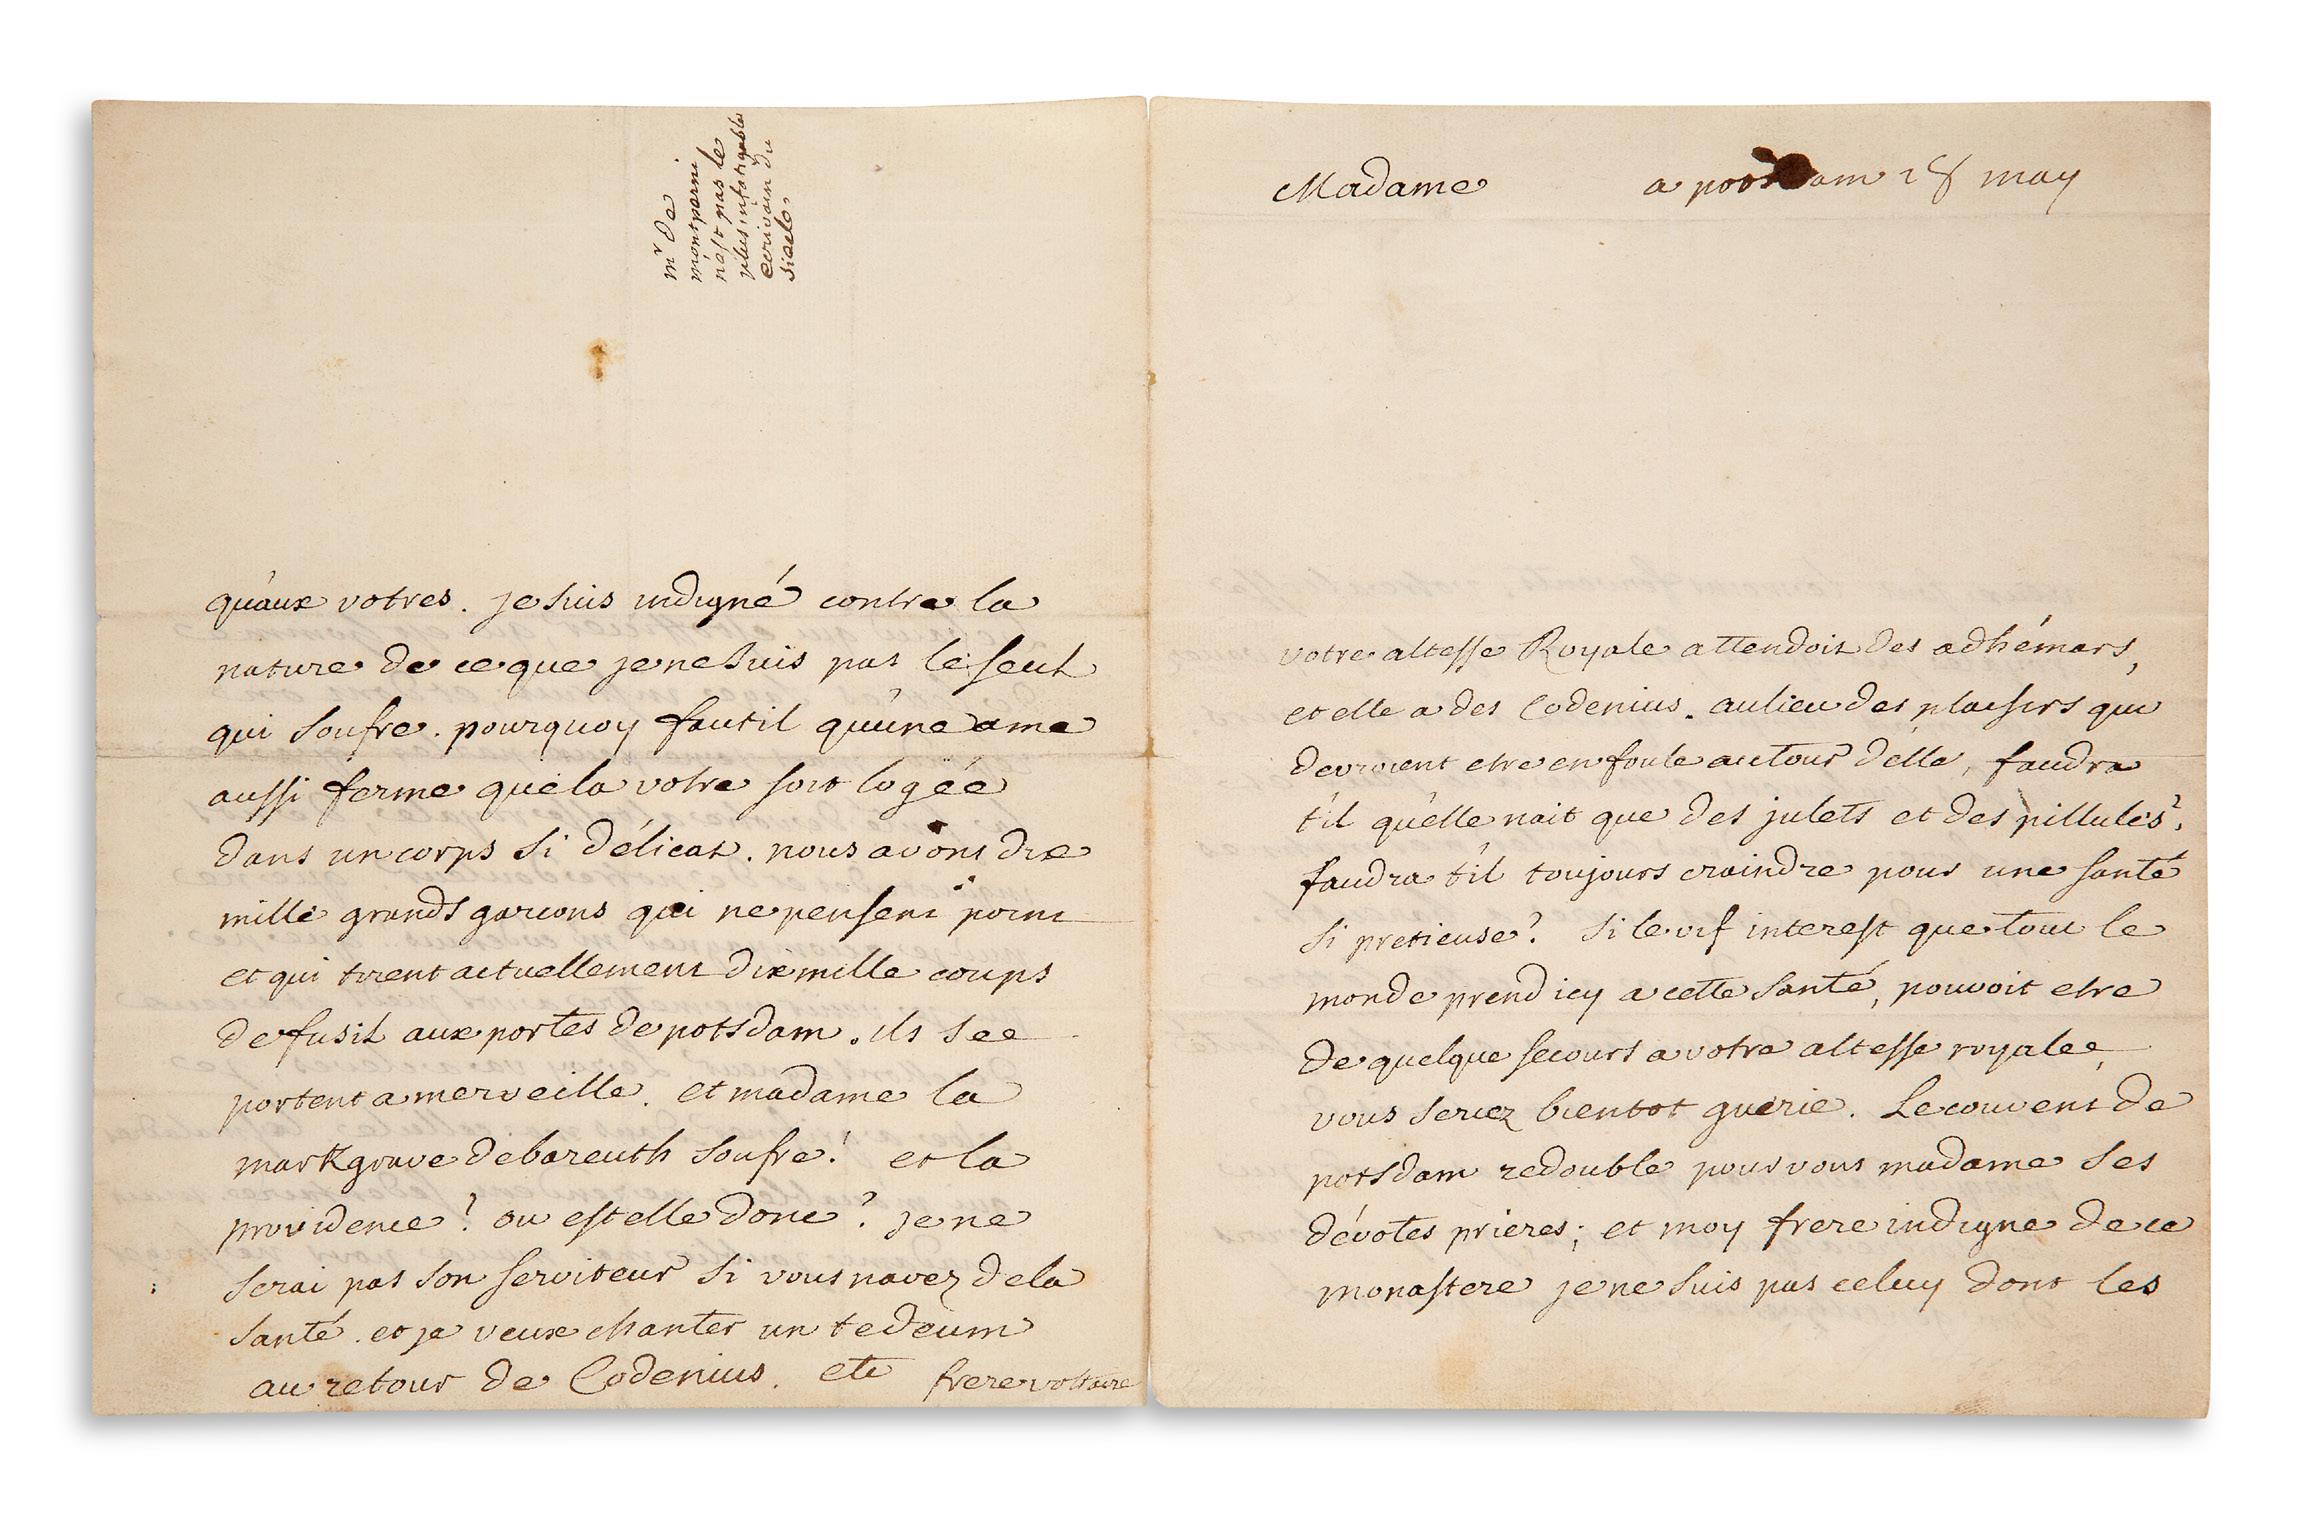 Madame
a potsdam 28 may
votre altesse Royale attendoit des adhémars,
et elle a des Codenius. au lieu des plaisirs qui
devroient etre en foule autour d'elle, faudra
t'il qu'elle nait que des julets et des pillules?
faudra t'il toujours craindre pour une santé
si pretieuse? si le vif interest que tout le
monde prend icy a cette santé, pouvoit etre
de quelque secours a votre altesse royale,
vous seriez bientot guerie. Le couvent de
potsdam redouble pour vous madame ses
dévotes prieres; et moy frere indigne de ce
monastere je ne suis pas celuy dont les
qu'aux votres. je suis indigné contre la
nature de ce que je ne suis pas le seul
qui soufre. pourquoy fautil qu'une ame
aussi ferme que la votre soit logée
dans un corps si délicat. nous avons dix
mille grands garcons qui ne pensent point
et qui tirent actuellement dix mille coups
de fusil aux portes de potsdam. ils se
portent a merveille. et madame la
markgrave de bareuth soufre! et la
providence! ou est elle donc? je ne
serai pas son serviteur si vous navez de la
santé. et je veux chanter un tedeum
au retour de Codenius. etc frere voltaire
mr de
montperni
nest pas le
plus infatigable
ecrivain du
siecle.